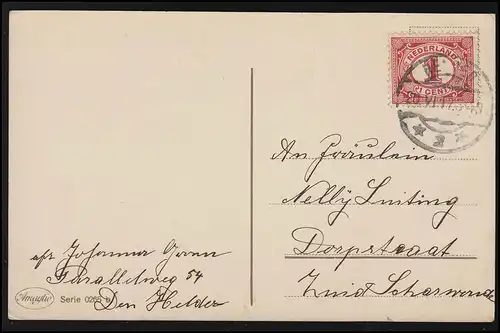 NEDERLAND
1
CENT
2
An Fräulein
Nelly Luiting
Dorpstraat
Zuid Scharwoude
afz Johanna
Parallelweg 54
Den Helder
Amag
Serie 0265 b